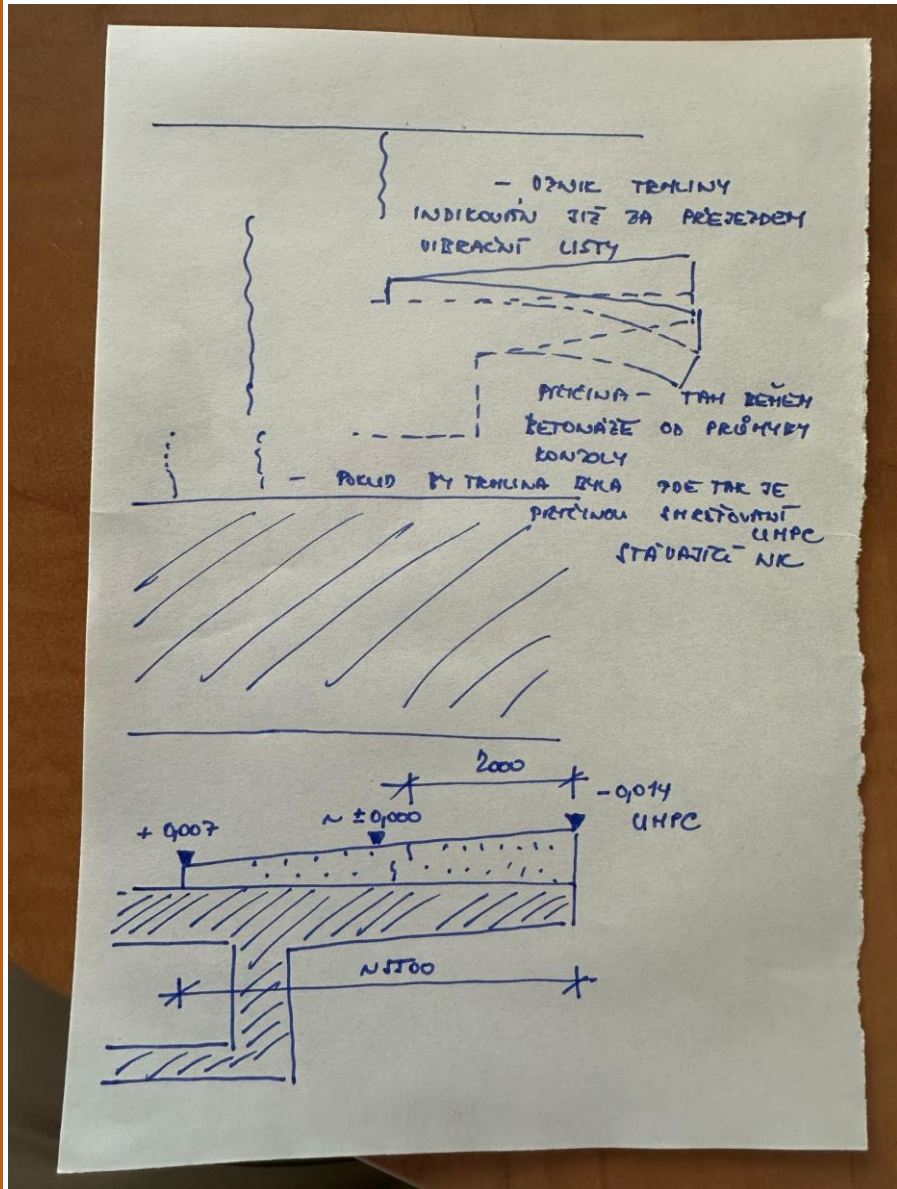 - VZNIK TRHLINY
INDIKOVÁN JIŽ ZA PŘEJEZDEM
VIBRAČNÍ LISTY
PŘÍČINA - TAH BĚHEM
BETONÁŽE OD PRŮHYBY
KONZOLY
- POKUD BY TRHLINA BYLA ZDE TAK JE
PŘÍČINOU SMRŠŤOVÁNÍ
UHPC
STÁVAJÍCÍ NK
2000
-0,014
UHPC
~ ±0,000
+0,007
~5500